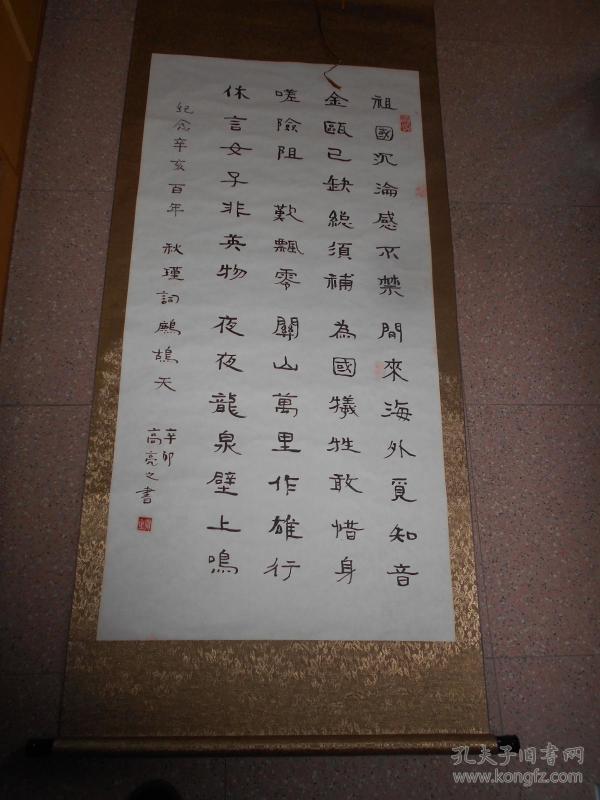 祖國沉淪感不禁 閒來海外覓知音
金甌已缺總須補 為國犧牲敢惜身
嗟險阻 歎飄零 關山萬里作雄行
休言女子非英物 夜夜龍泉壁上鳴
紀念辛亥百年 秋瑾詞鷓鴣天
辛卯
高亮之書
孔夫子旧书网
www.kongfz.com